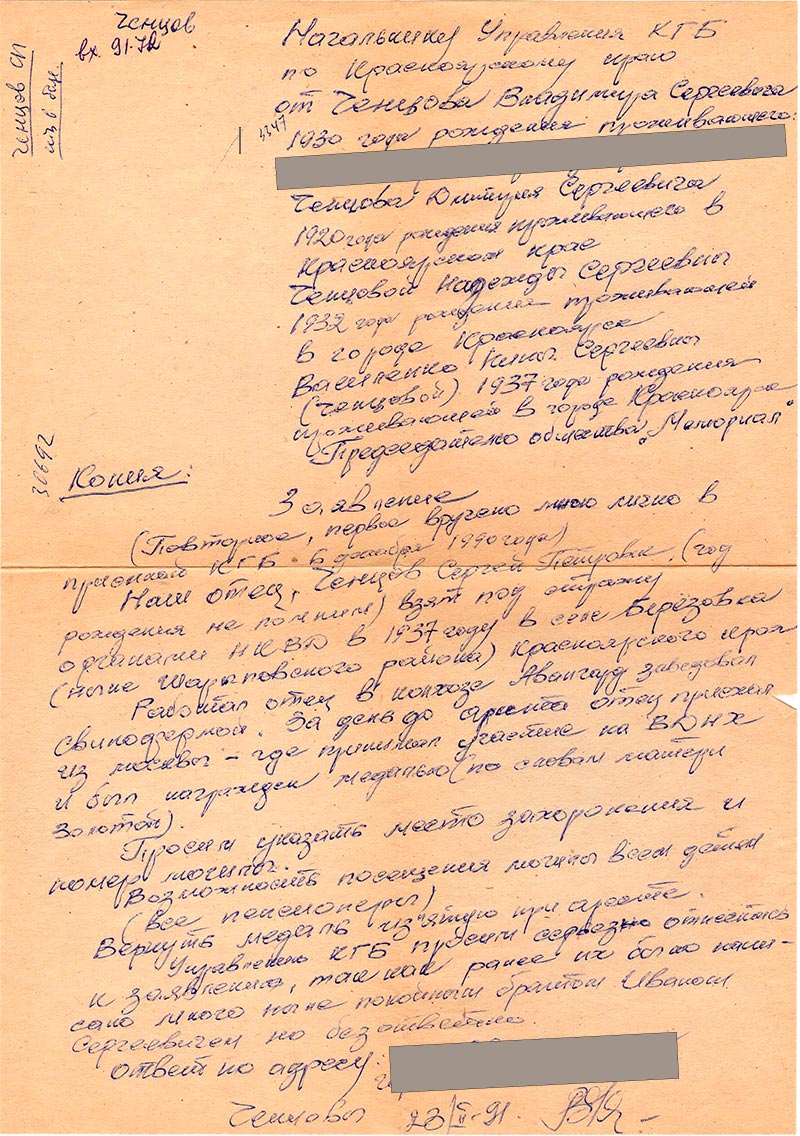 Ченцов
вх. 91-72
Ченцов СП
4347
Начальнику Управления КГБ
по Красноярскому краю
от Ченцова Владимира Сергеевича
1930 года рождения проживающего:
Ченцова Дмитрия Сергеевича
1920 года рождения проживающего в
Красноярском крае
Ченцовой Надежды Сергеевны
1932 года рождения проживающей
в городе Красноярске
Васипенко Нины Сергеевны
(Ченцовой) 1937 года рождения
проживающей в городе Красноярске
Председателю общества „Мемориал"
30692
Копия:
Заявление
(Повторное, первое вручено мною лично в
приемной КГБ 6 декабря 1990 года)
Наш отец, Ченцов Сергей Петрович, (год
рождения не помним) взят под стражу
органами НКВД в 1937 году в селе Берёзовка
(ныне Шарыповского района) Красноярского края
Работал отец в колхозе Авангард заведовал
свинофермой. За день до ареста отец приехал
из москвы – где принимал участие на ВДНХ
и был награжден медалью (по словам матери
золотой).
Просим указать место захоронения и
номер могилы.
Возможность посещения могилы всем детям
(все пенсионеры)
Вернуть медаль изъятую при аресте.
Управлению КГБ просим серьезно отнестись
к заявлению, так как ранее их было напи-
сано много ныне покойным братом Иваном
Сергеевичем но безответно.
ответ по адресу:
Ченцовы 23/II-91.